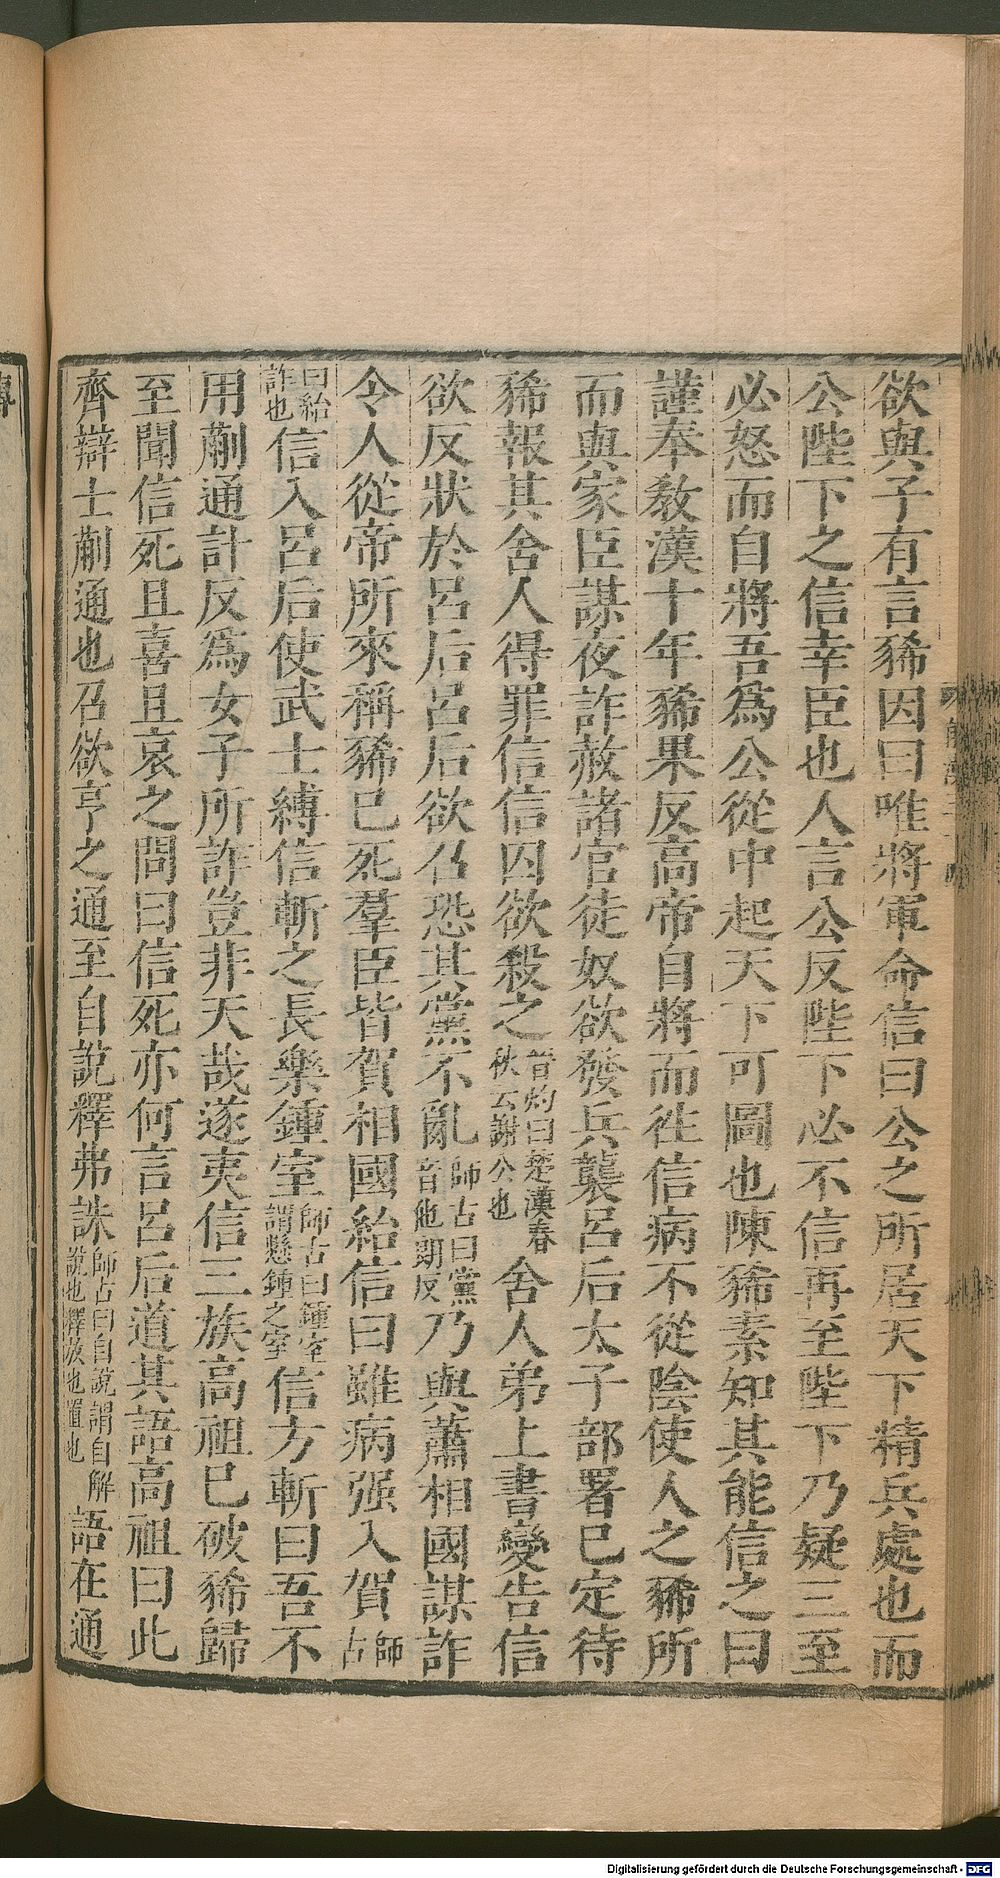 欲與子有言豨因曰唯將軍命信曰公之所居天下精兵處也而
公陛下之信幸臣也人言公反陛下必不信再至陛下乃疑三至
必怒而自將吾爲公從中起天下可圖也陳豨素知其能信之曰
謹奉教漢十年豨果反高帝自將而徃信病不從陰使人之豨所
而與家臣謀夜詐赦諸官徒奴欲發兵襲呂后太子部署已定待
豨報其舍人得罪信信囚欲殺之晉灼曰楚漢春秋云謝公也舍人弟上書變告信
欲反狀於呂后呂后欲召恐其黨不亂師古曰黨音他朗反乃與蕭相國謀詐
令人從帝所來稱豨已死羣臣皆賀相國紿信曰雖病强入賀師古
曰紿詐也信入呂后使武士縛信斬之長樂鍾室師古曰鍾室謂懸鍾之室信方斬曰吾不
用蒯通計反爲女子所詐豈非天哉遂夷信三族高祖已破豨歸
至聞信死且喜且哀之問曰信死亦何言呂后道其語高祖曰此
齊辯士蒯通也召欲亨之通至自說釋弗誅師古曰自說謂自解說也釋放也置也語在通
Digitalisierung gefördert durch die Deutsche Forschungsgemeinschaft - DFG